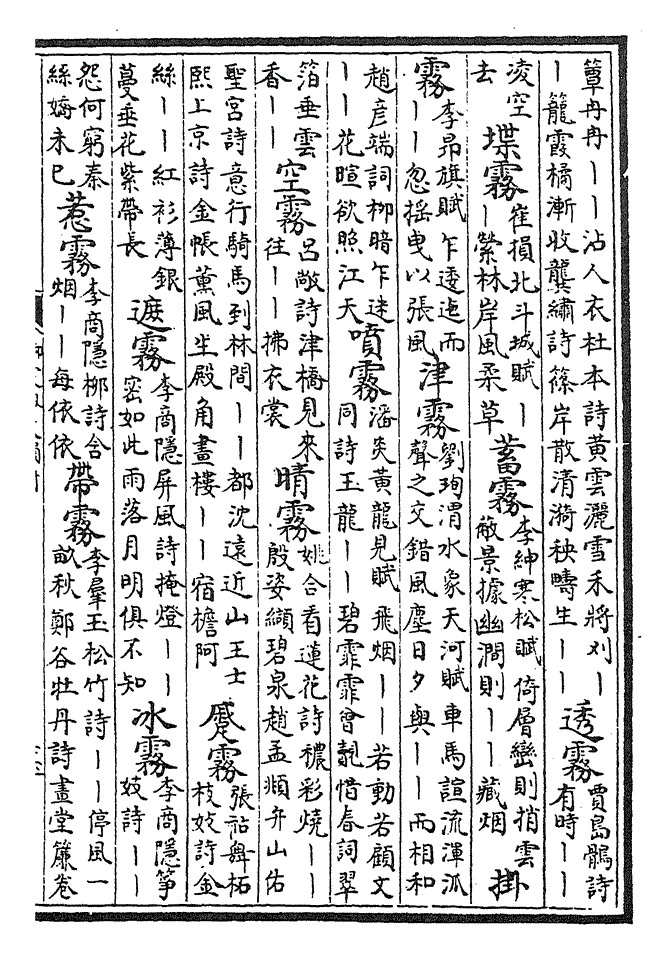 簟冉冉丨丨沾人衣杜本詩黃雲灑雪禾將刈丨丨籠霞橘漸收龔繡詩篠岸散清漪秧疇生丨丨 透霧 賈島鶻詩有時丨丨
凌空去 堞霧 崔損北斗城賦丨丨縈林岸風柔草 蓄霧 李紳寒松賦倚層巒則捎雲蔽景據幽澗則丨丨藏烟 掛
霧 李昂旗賦乍逶迤而丨丨忽揺曳以張風 津霧 劉珣渭水象天河賦車馬諠流渾泒聲之交錯風塵日夕與丨丨而相和
趙彥端詞柳暗乍迷丨丨花暄欲照江天 噴霧 潘炎黃龍見賦飛烟丨丨若動若顧文同詩玉龍丨丨碧霏霏曾覿惜春詞翠
箔垂雲香丨丨 空霧 呂敞詩津橋見來往丨丨拂衣裳 晴霧 姚合看蓮花詩穠彩燒丨丨殷姿纈碧泉趙孟頫弁山佑
聖宮詩意行騎馬到林間丨丨都沈遠近山王士熙上京詩金帳薰風生殿角畫樓丨丨宿檐阿 蹙霧 張祜舞柘枝妓詩金
絲丨丨紅衫薄銀蔓垂花紫帶長 遮霧 李商隱屏風詩掩燈丨丨密如此雨落月明俱不知 冰霧 李商隱箏妓詩丨丨
怨何窮秦絲嬌未已 惹霧 李商隱柳詩含烟丨丨每依依 帶霧 李羣玉松竹詩丨丨停風一畝秋鄭谷牡丹詩畫堂簾卷